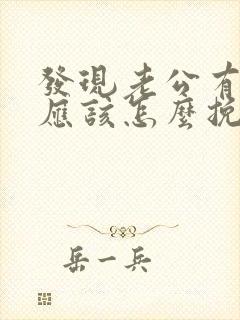 發現老公有
應該怎麼挽
岳一兵